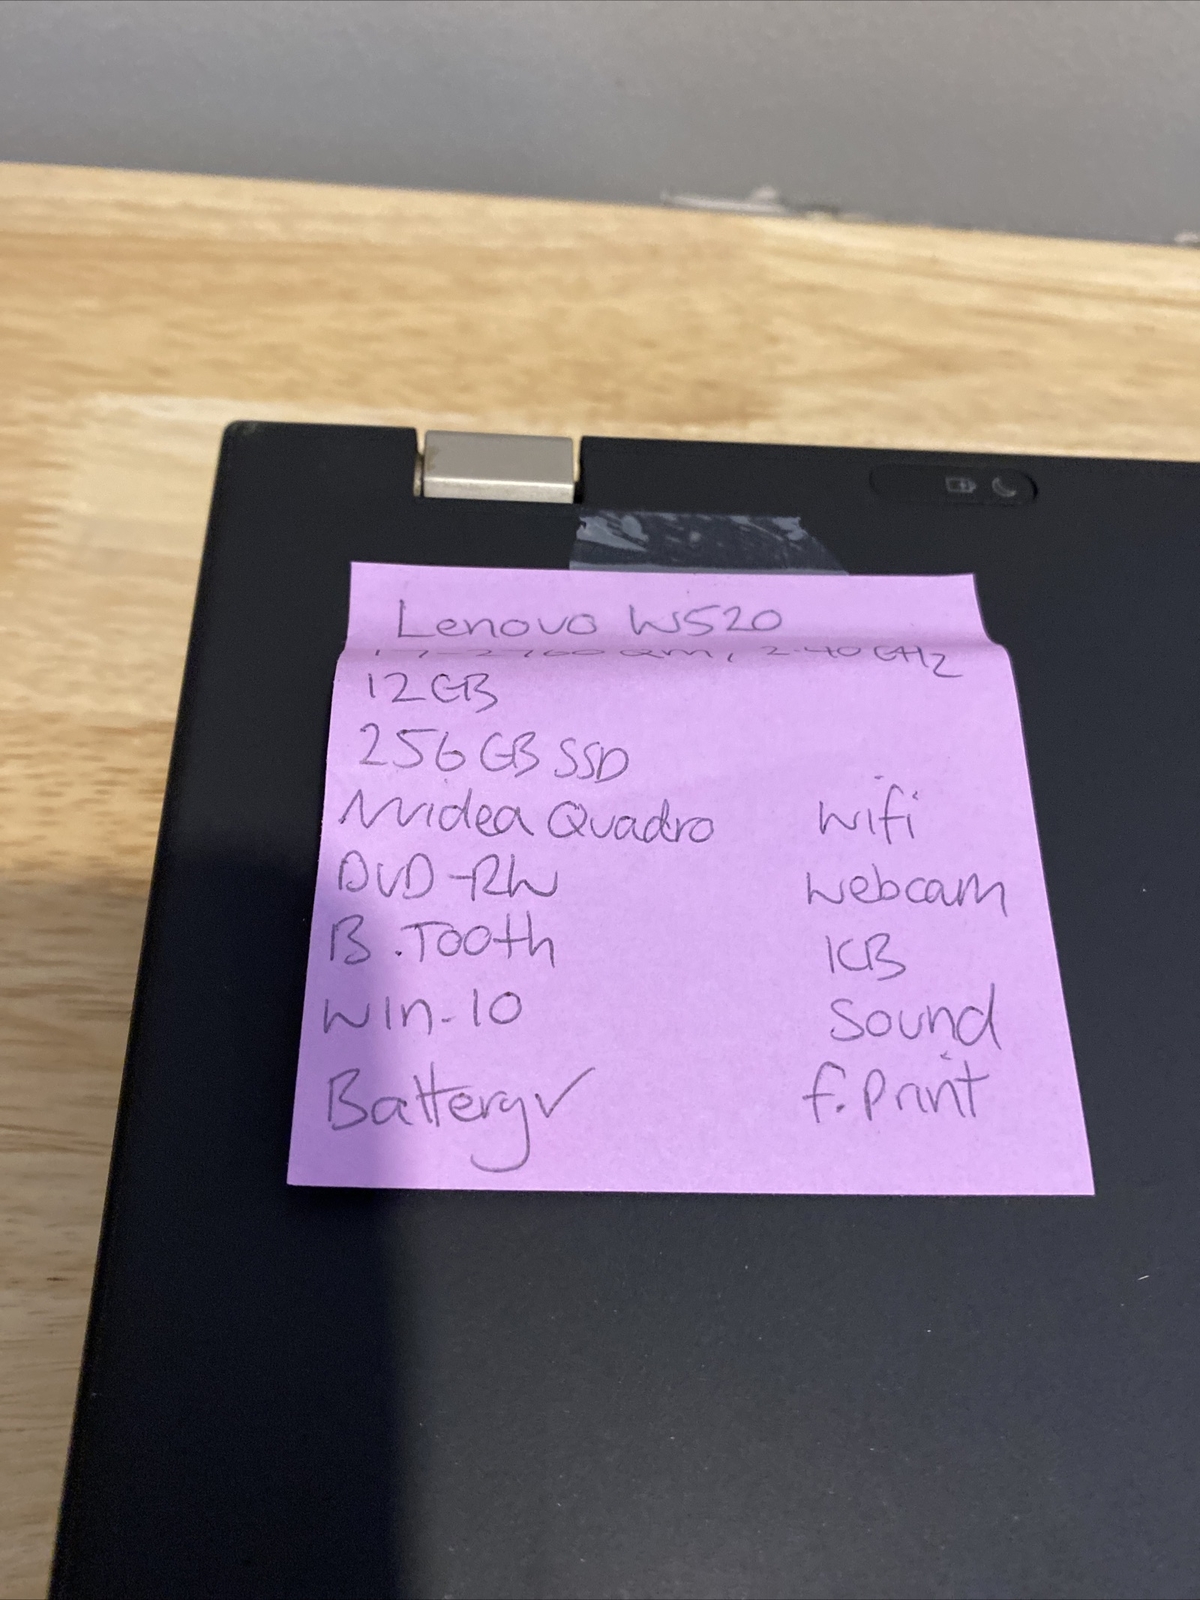 Lenovo W520
i7-2760QM, 2.40GHz
12GB
256GB SSD
Nvidea Quadro
DVD-RW
B.Tooth
Win-10
Battery✓
Wifi
Webcam
KB
Sound
f.Print